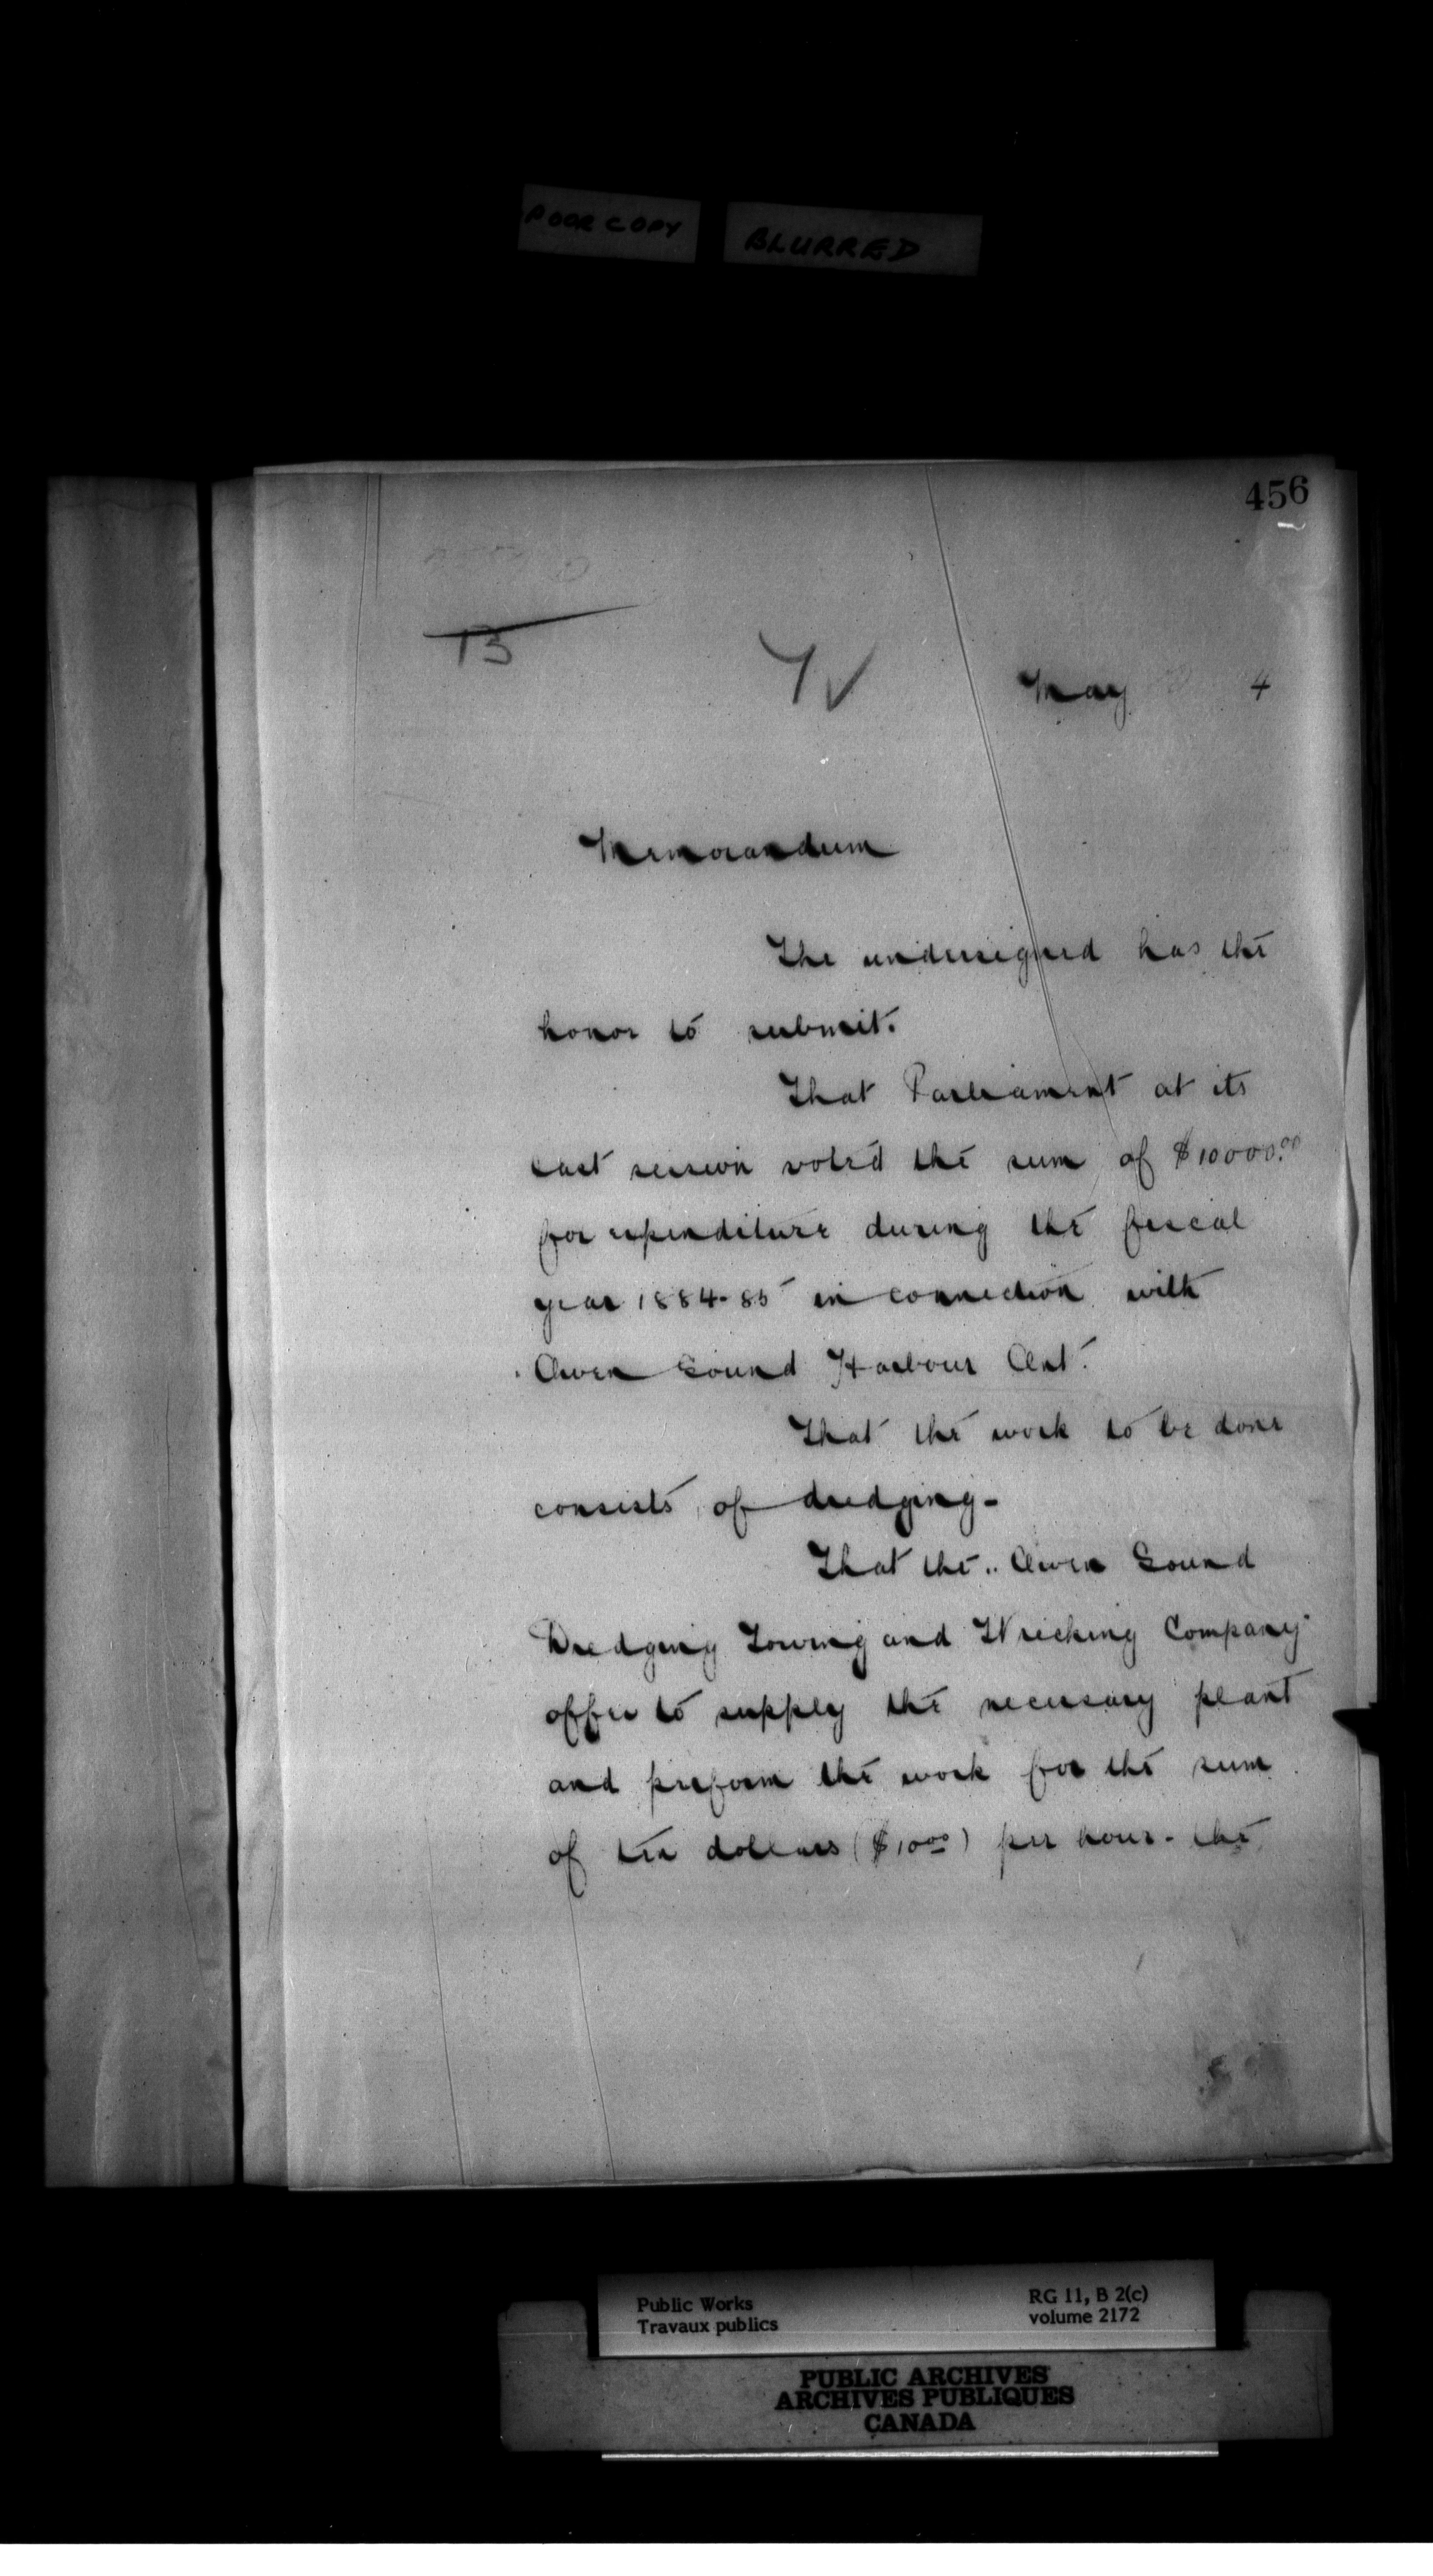 POOR COPY BLURRED
456
13
May 4
Memorandum
The undersigned has the
honor to submit.
That Parliament at its
last session voted the sum of $10000.00
for expenditure during the fiscal
year 1884-85 in connection with
Owen Sound Harbour Ont.
That the work to be done
consists of dredging-
That the "Owen Sound
Dredging Towing and Wrecking Company"
offer to supply the necessary plant
and preform the work for the sum
of ten dollars ($10.00) per hour - the
Public Works RG 11, B 2(c)
Travaux publics volume 2172
PUBLIC ARCHIVES
ARCHIVES PUBLIQUES
CANADA